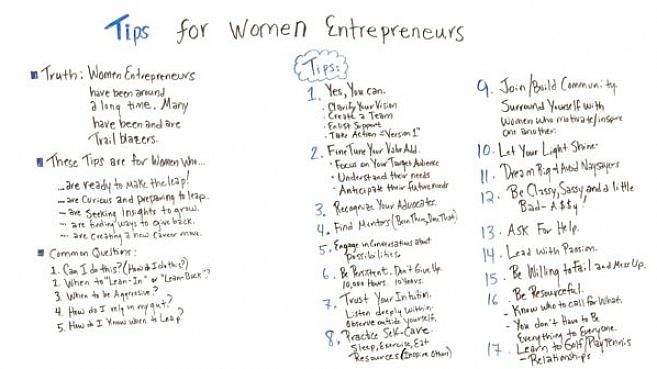 Tips for Women Entrepreneurs
Truth: Women Entrepreneurs
have been around
a long time. Many
have been and are
Trail blazers.
These Tips are for Women Who...
...are ready to make the leap!
...are curious and preparing to leap.
...are seeking insights to grow.
...are finding ways to give back.
...are creating a new career move.
Common Questions:
1. Can I do this? (How do I do this?)
2. When to "Lean-In" or "Lean-Back"?
3. When to be Aggressive?
4. How do I rely on my gut?
5. How do I know when to Leap?
Tips:
1. Yes, You Can.
• Clarify Your Vision
• Create a Team
• Enlist Support
• Take Action = "Version 1"
2. Fine Tune Your Value Add.
• Focus on Your Target Audience
• Understand their needs
• Anticipate their future needs
3. Recognize Your Advocates.
4. Find Mentors (Been There, Done That)
5. Engage in Conversations about
Possibilities.
6. Be Persistent. Don't Give Up.
10,000 Hours. 10 Years.
7. Trust Your Intuition.
Listen deeply within.
Observe outside yourself.
8. Practice Self-Care.
Sleep, Exercise, Eat
Resources (Inspire Others)
9. Join/Build Community.
Surround Yourself with
Women who motivate/inspire
one another.
10. Let Your Light Shine.
11. Dream Big & Avoid Naysayers
12. Be Classy, Sassy and a little
Bad-A$$y!
13. Ask For Help.
14. Lead with Passion.
15. Be Willing to Fail and Mess Up.
16. Be Resourceful.
- Know who to call for What.
- You don't Have to Be
Everything to Everyone.
17. Learn to Golf/Play Tennis
- Relationships